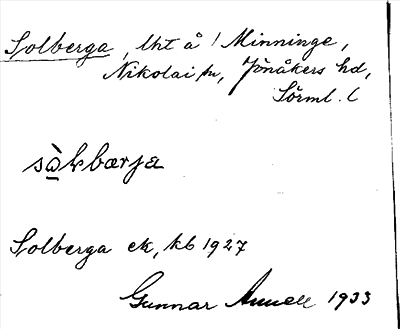 Solberga, lht å / Minninge,
Nikolai sn, Jönåkers hd,
Sörml. l
Solberga ek, kb 1927
Gunnar 1933